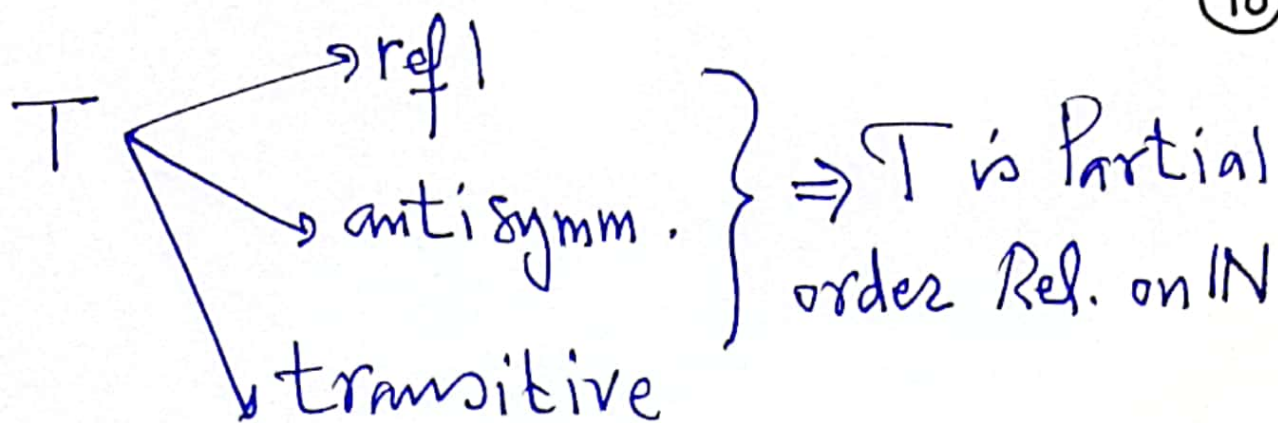 10
T → refl
→ antisymm. } ⇒ T is Partial
order Rel. on ℕ
→ transitive